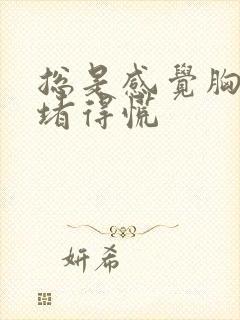 總是感覺胸
堵得慌
妍希